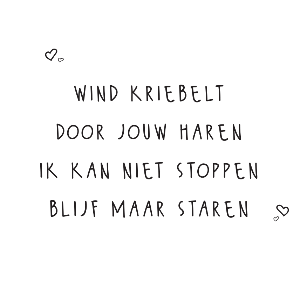 WIND KRIEBELT
DOOR JOUW HAREN
IK KAN NIET STOPPEN
BLIJF MAAR STAREN